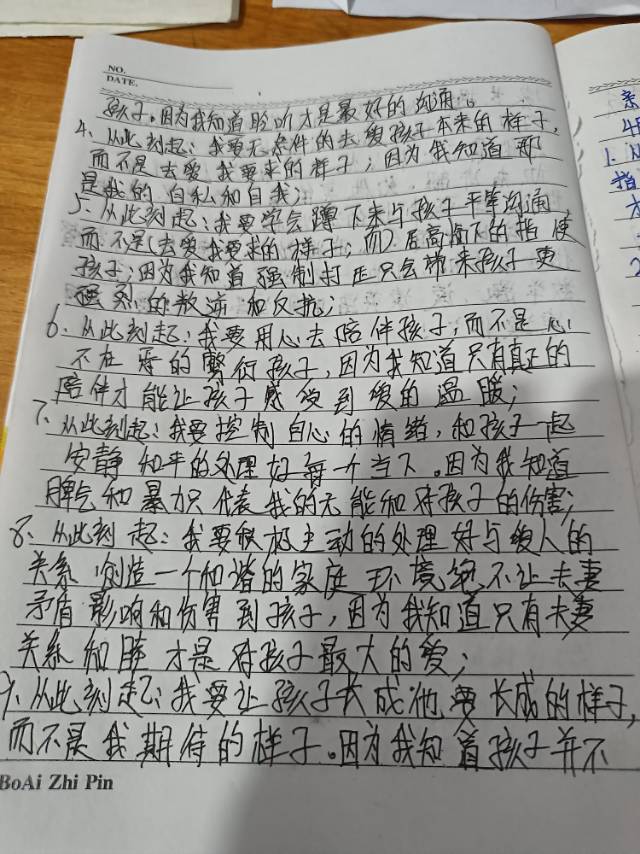 NO.
DATE.
孩子。因为我知道聆听才是最好的沟通。
4、从此刻起：我要无条件的去爱孩子本来的样子，
而不是去爱我要求的样子；因为我知道那
是我的自私和自我；
5、从此刻起：我要学会蹲下来与孩子平等沟通，
而不是(去爱我要求的样子；而)居高临下的指使
孩子；因为我知道强制打压只会带来孩子更
强烈的叛逆和反抗；
6、从此刻起：我要用心去陪伴孩子，而不是心
不在焉的敷衍孩子，因为我知道只有真正的
陪伴才能让孩子感受到爱的温暖；
7、从此刻起：我要控制自己的情绪，和孩子一起
安静和平的处理好每一个当下。因为我知道
脾气和暴力只代表我的无能和对孩子的伤害；
8、从此刻起：我要积极主动的处理好与爱人的
关系，创造一个和谐的家庭环境绝不让夫妻
矛盾影响和伤害到孩子，因为我知道只有夫妻
关系和睦才是对孩子最大的爱；
9、从此刻起：我要让孩子长成他要长成的样子，
而不是我期待的样子。因为我知道孩子并不
BoAi Zhi Pin
亲
1.
指
2